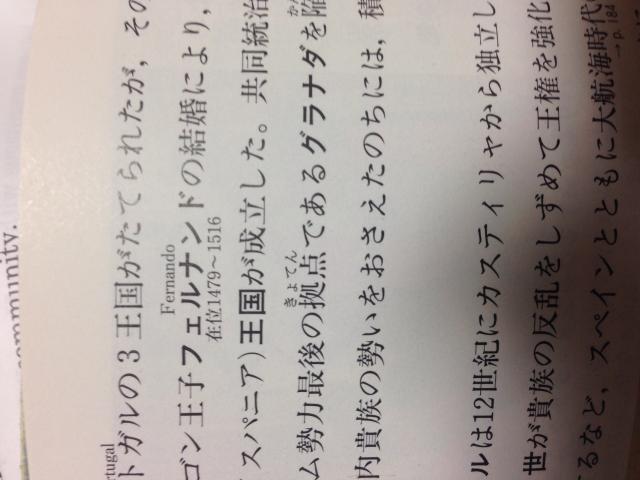 community.
rtugal
トガルの3王国がたてられたが，その
Fernando
ゴン王子フェルナンドの結婚により，
在位1479～1516
スパニア)王国が成立した。共同統治
きょてん かん
ム勢力最後の拠点であるグラナダを陥
内貴族の勢いをおさえたのちには，積
ルは12世紀にカスティリャから独立し
世が貴族の反乱をしずめて王権を強化
るなど，スペインとともに大航海時代
→p. 184